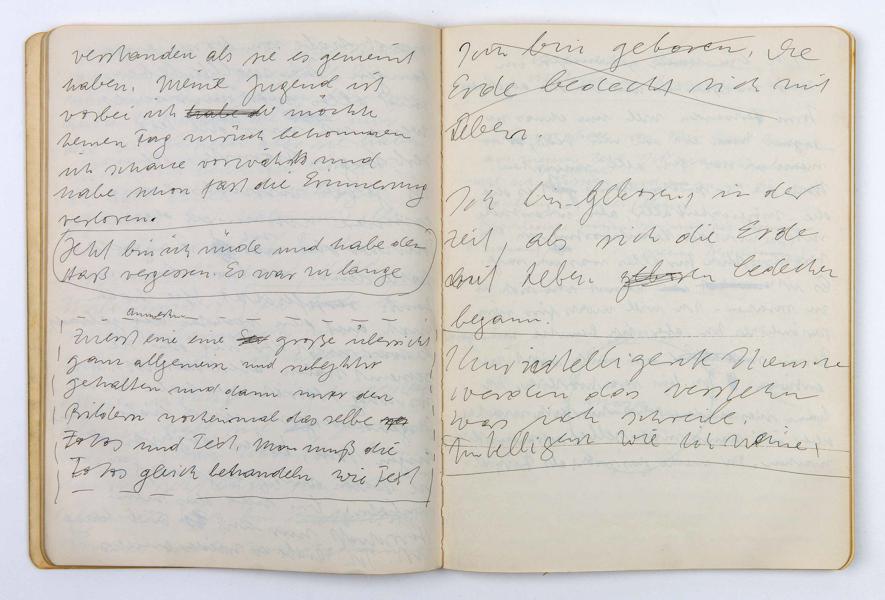 verstanden als sie es gemeint
haben. Meine Jugend ist
vorbei ich habe d möchte
keinen Tag zurück bekommen
ich schaue vorwärts und
habe schon fast die Erinnerung
verloren.
Jetzt bin ich müde und habe den
Haß vergessen. Es war zu lange
Zuerst eine eine große Übersicht
ganz allgemein und subjektiv
gehalten und dann unter den
Bildern nocheinmal das selbe
Fotos und Text. Man muß die
Fotos gleich behandeln wie Text
Ich bin geboren. Die
Erde bedeckt sich mit
Leben.
Ich bin Geboren in der
Zeit, als sich die Erde
mit Leben zu bedecken
begann.
Nur intelligente Menschen
werden das verstehen
was ich schreibe.
Intelligent wie ich meine.